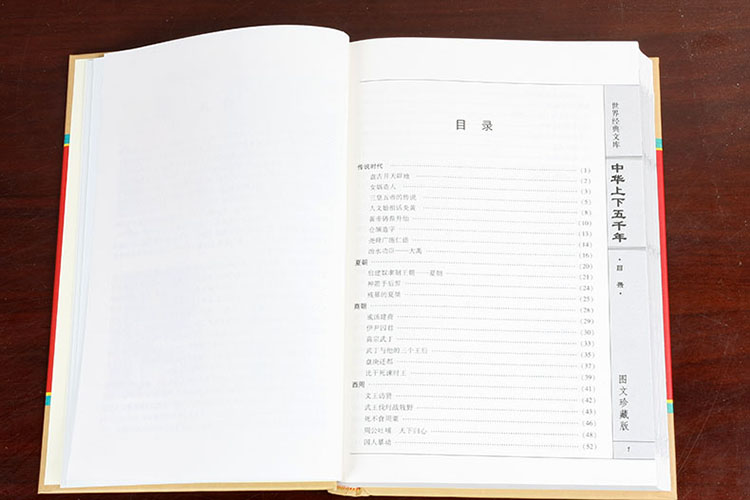 目 录
传说时代 (1)
盘古开天辟地 (2)
女娲造人 (3)
三皇五帝的传说 (5)
人文始祖话炎黄 (8)
黄帝铸鼎升仙 (10)
仓颉造字 (13)
尧舜广施仁德 (14)
治水功臣——大禹 (16)
夏朝 (20)
始建奴隶制王朝——夏朝 (21)
神箭手后羿 (24)
残暴的夏桀 (25)
商朝 (28)
成汤建商 (29)
伊尹囚君 (30)
武丁 (33)
武丁与他的三个王后 (35)
盘庚迁都 (37)
比干死谏纣王 (39)
西周 (41)
文王访贤 (42)
武王伐纣战牧野 (43)
死不食周粟 (46)
周公吐哺 天下归心 (48)
国人暴动 (52)
世界经典文库
中华上下五千年
·目录·
图文珍藏版
1